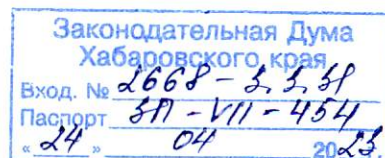 Законодательная Дума
Хабаровского края
Вход. № 2668-3.3.31
Паспорт ЗП-VII-454
«24» 04 2023